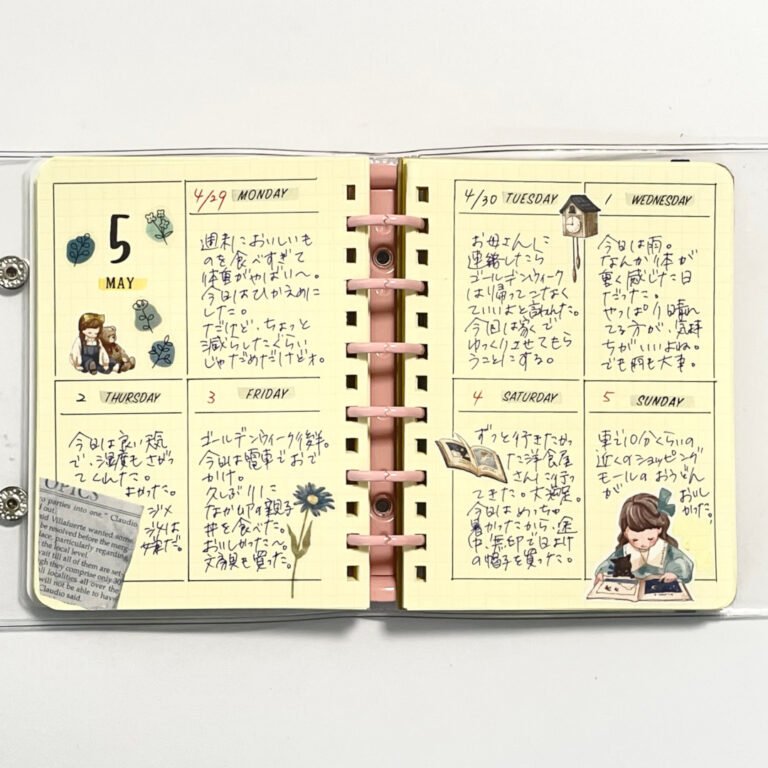 5
MAY
4/29 MONDAY
週末においしいも
のを食べすぎて
体重がやばい〜。
今日はひかえめに
した。
だけど、ちょっと
減らしたくらい
じゃだめだけどォ。
4/30 TUESDAY
お母さんに
連絡したら
ゴールデンウィーク
は帰ってこなく
ていいよと言われた。
今回は家で
ゆっくりさせてもら
うことにする。
1 WEDNESDAY
今日は雨。
なんか体が
重く感じた日
だった。
やっぱり晴れ
てる方が、気持
ちがいいよね。
でも雨も大事。
2 THURSDAY
今日は良い天気
で、湿度もさがっ
てくれた。
よかった。
ジメ
ジメは
だ。
OPICS
parties into one." Claudio
d out.
id Villafuerte wanted some
be resolved before the merg
lace, particularly regarding
the local level.
wait till all of them are set
gh they comprise only 30
ll localities all over the
will not be able to have
Claudio said.
3 FRIDAY
ゴールデンウィーク後半。
今日は電車でおで
かけ。
久しぶりに
なか卯の親子
丼を食べた。
おいしかった〜。
文房具も買った。
4 SATURDAY
ずっと行きたかっ
た洋食屋
さんに行っ
てきた。大満足。
今日はめっちゃ
暑かったから、途
中、無印で日よけ
の帽子を買った。
5 SUNDAY
車で10分くらいの
近くのショッピング
モールのおうどん
が おいし
かった。